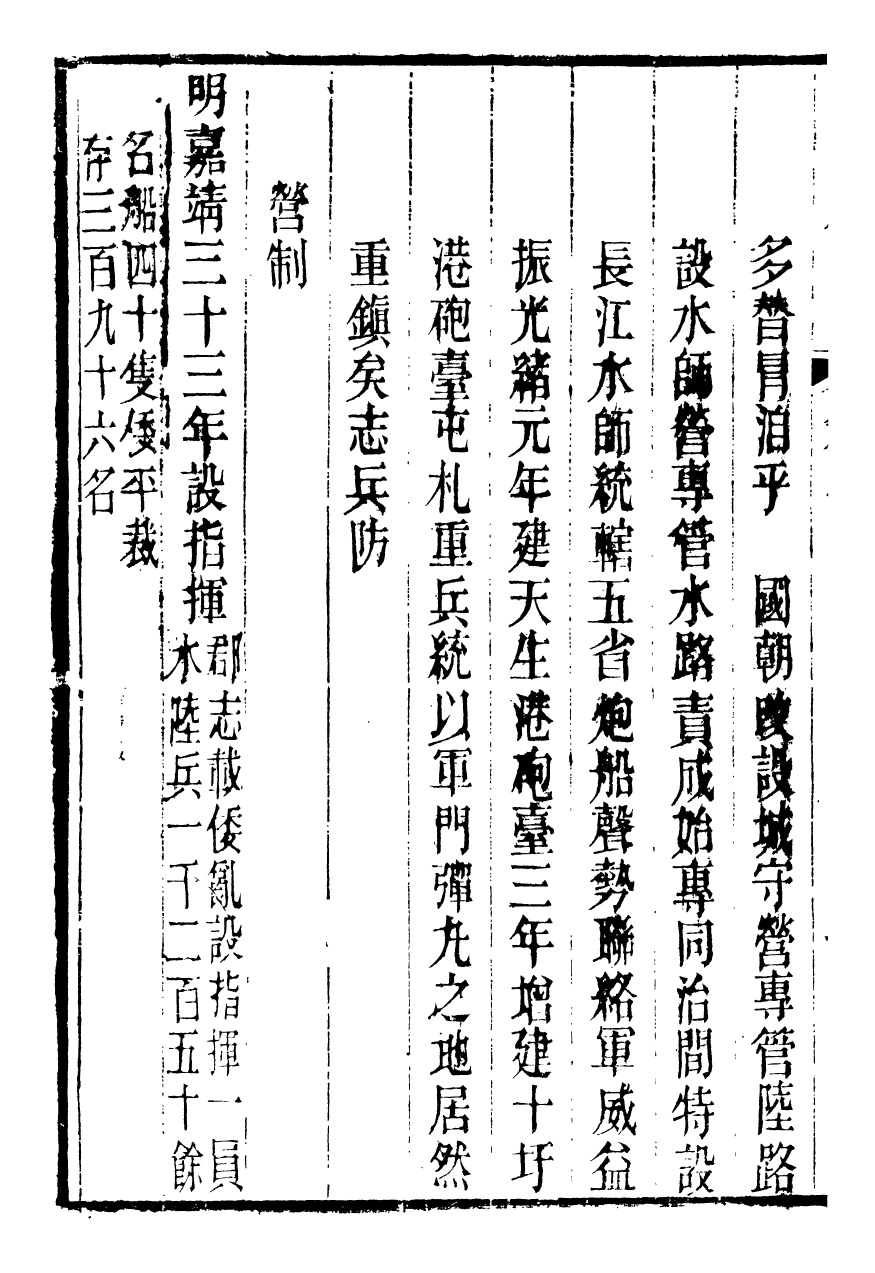 多營員泊乎　國朝改設城守營專管陸路
設水師營專管水路責成始專同治間特設
長江水師統轄五省炮船聲勢聯絡軍威益
振光緒元年建天生港砲臺三年增建十圩
港砲臺屯札重兵統以軍門彈丸之地居然
重鎭矣志兵防
營制
明嘉靖三十三年設指揮郡志載倭亂設指揮一員
水陸兵一千二百五十餘
名船四十隻倭平裁
存三百九十六名